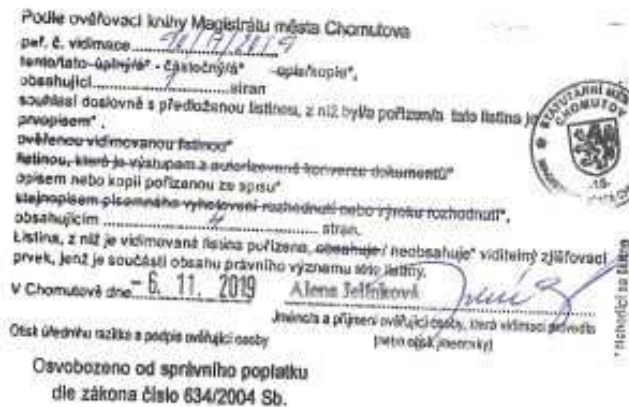 Podle ověřovací knihy Magistrátu města Chomutova
poř. č. vidimace
tento/tato úplný/á* - částečný/á* -opis/kopie*,
obsahující stran
souhlasí doslovně s předloženou listinou, z níž byl/a pořízen/a tato listina je
prvopisem*,
ověřenou vidimovanou listinou*
listinou, která je výstupem z autorizované konverze dokumentů*
opisem nebo kopií pořízenou ze spisu*
stejnopisem písemného vyhotovení rozhodnutí nebo výroku rozhodnutí*,
obsahujícím 4 stran.
Listina, z níž je vidimovaná listina pořízena, obsahuje / neobsahuje* viditelný zjišťovací
prvek, jenž je součástí obsahu právního významu této listiny.
V Chomutově dne - 6. 11. 2019 Alena Jelínková
Jméno/a a příjmení ověřující osoby, která vidimaci provedla
Otisk úředního razítka a podpis ověřující osoby (nebo otisk jmenovky)
Osvobozeno od správního poplatku
dle zákona číslo 634/2004 Sb.
STATUTÁRNÍ MĚ
CHOMUTOV